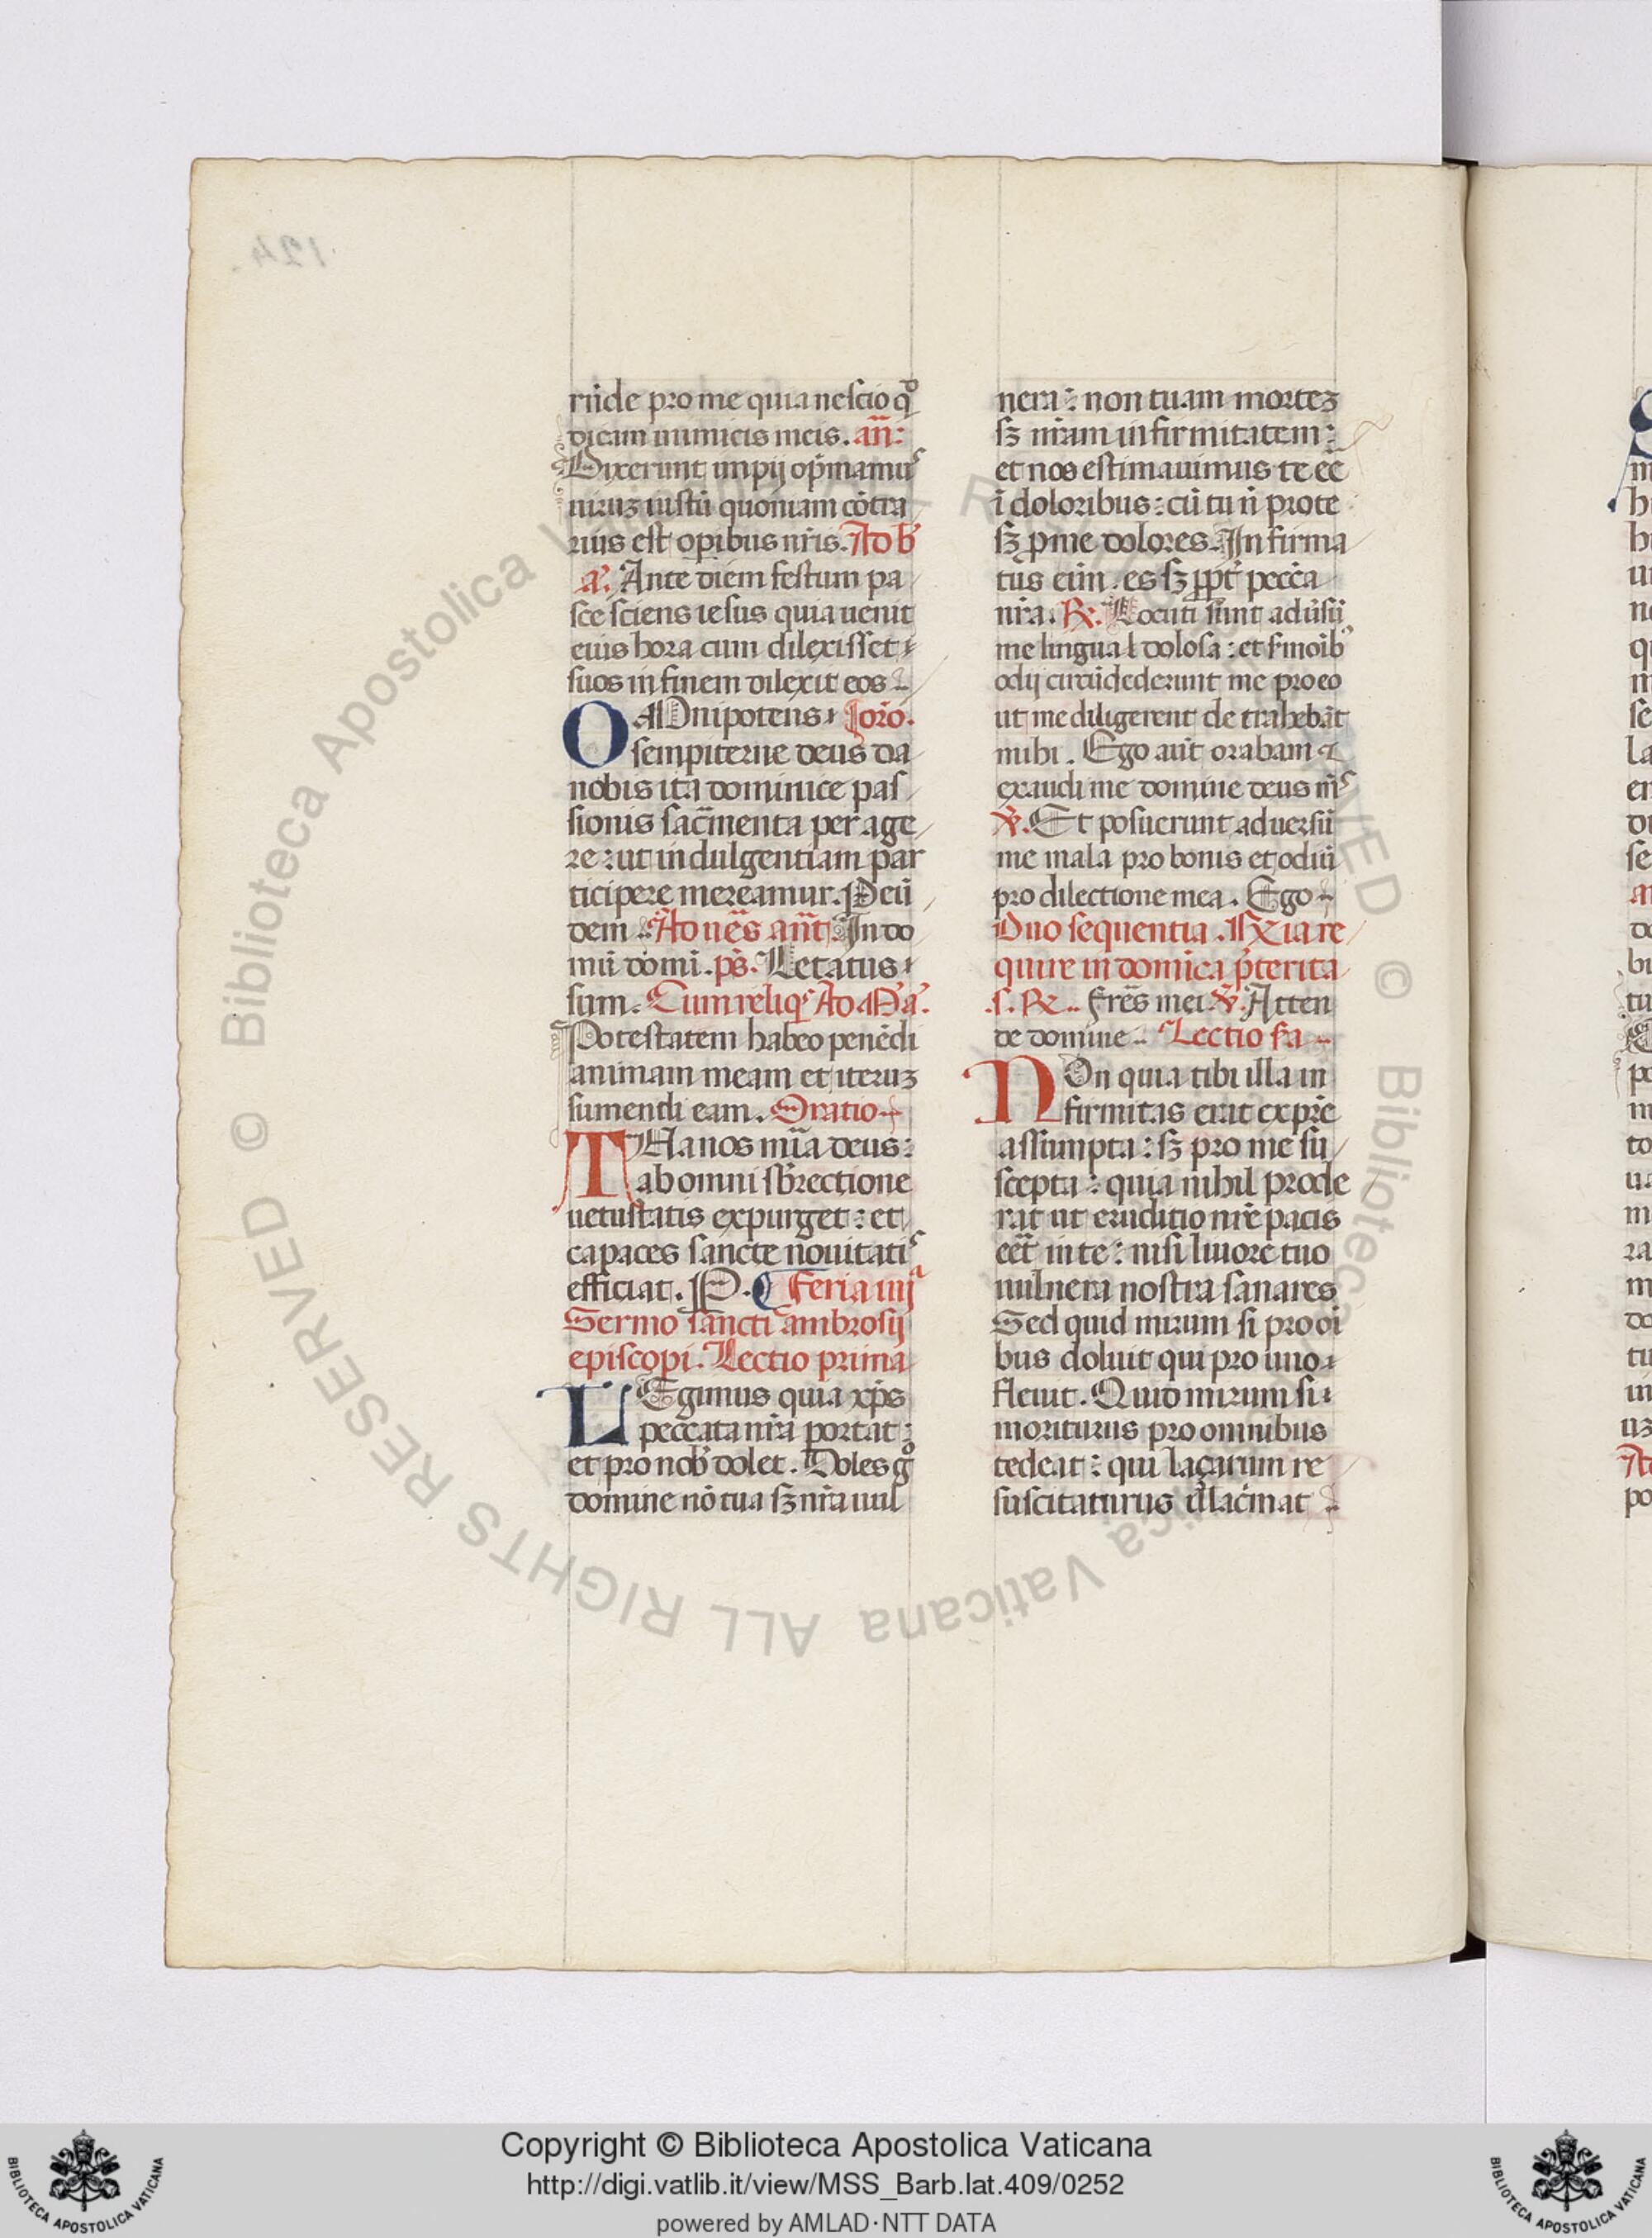 rūde pro me quia nescio qͦ
dicam inimicis meis. añ:
Dixerunt impij op̄mamus
uiruȝ iustū quoniam cōtra
rius est opibus nr̄is. Ad b̄
a. Ante diem festum pa
sce sciens iesus quia uenit
eius hora cum dilexisset
suos in finem dilexit eos
OMnipotens orō.
sempiterne deus da
nobis ita dominice pas
sionis sac̄menta perage
re: ut indulgentiam par
ticipere mereamur. P eū
dem. Ad ues̄ añt. In do
mū domi. ps. Letatus
sum. Cum reliq̄s Ad M a.
Potestatem habeo penēdi
animam meam et iteruȝ
sumendi eam. Oratio
TUa nos mīa deus:
ab omni sb̄rectione
uetustatis expurget: et
capaces sancte nouitatis
efficiat. P. Feria iiijª
Sermo sancti ambrosij
episcopi. Lectio prima
LEgimus quia xp̄s
peccata nr̄a portat:
et pro nob̄ dolet. Doles gͦ
domine nō tua sȝ nr̄a uul
nera: non tuam morteȝ
sȝ nr̄am infirmitatem:
et nos estimauimus te eē
ī doloribus: cū tu n̄ pro te
sȝ p me dolores. Infirma
tus eim̄. es sȝ ppt̄ pecc̄a
nr̄a. ℟. Locuti sunt adūsū
me lingua dolosa: et s̄monib̄
odij circūdederunt me pro eo
ut me diligerent detrahebāt
mihi. Ego aūt orabam
exaudi me domine deus ms
℣. Et posuerunt aduersū
me mala pro bonis et odiū
pro dilectione mea. Ego
Duo sequentia. ℟xia re
quire in domīca p̄terita
.s. ℟. Fr̄es mei ℣. Atten
de domine. Lectio sa
NOn quia tibi illa in
firmitas erat ex pr̄e
assumpta: sȝ pro me su
scepta: quia nihil prode
rat ut eruditio nr̄e pacis
eēt in te: nisi liuore tuo
uulnera nostra sanares
Sed quid mirum si pro oī
bus doluit qui pro uno
fleuit. Quid mirum si
moriturus pro omnibus
tedeat: qui laçarum re
suscitaturus illac̄mat
124
© Biblioteca Apostolica Vaticana ALL RIGHTS RESERVED
Copyright © Biblioteca Apostolica Vaticana
http://digi.vatlib.it/view/MSS_Barb.lat.409/0252
powered by AMLAD·NTT DATA
BIBLIOTECA APOSTOLICA VATICANA
BIBLIOTECA APOSTOLICA VATICANA